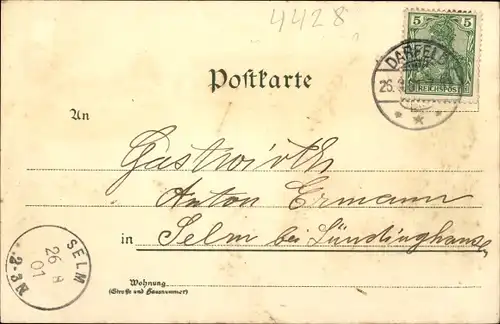 4428
5 5
REICHSPOST
DARFELD
26.
Postkarte
An
Gastwirth
Anton Ermann
in Selm bei Lündinghausen
SELM
26 8
01
2-3N
Wohnung
(Straße und Hausnummer)